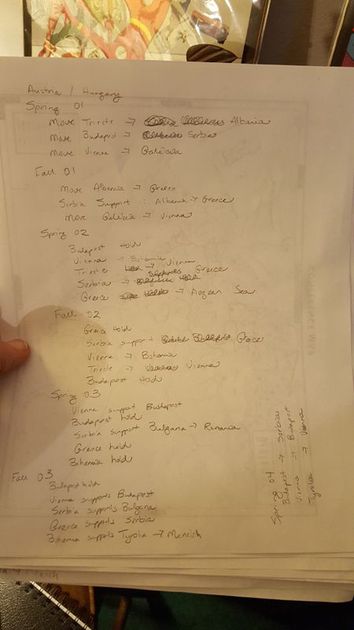 Austria / Hungary
Spring 01
Move Trieste → Albania
Move Budapest → Serbia
Move Vienna → Galicia
Fall 01
Move Albania → Greece
Serbia Support : Albania → Greece
Move Galicia → Vienna
Spring 02
Budapest Hold
Vienna → Bohemia
Trieste → Vienna
Serbia → Greece
Greece → Aegean Sea
Fall 02
Greece hold
Serbia support Greece
Vienna → Bohemia
Trieste → Vienna
Budapest Hold
Spring 03
Vienna support Budapest
Budapest hold
Serbia support Bulgaria → Romania
Greece hold
Bohemia hold
Fall 03
Budapest hold
Vienna supports Budapest
Serbia supports Bulgaria
Greece supports Serbia
Bohemia supports Tyrolia → Munich
Spring 04
Budapest → Serbia
Vienna → Budapest
Tyrolia → Vienna